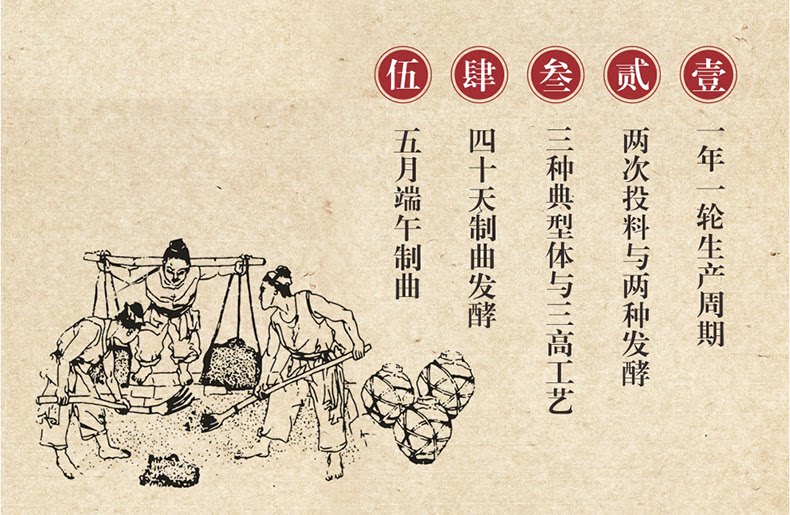 壹
一年一轮生产周期
贰
两次投料与两种发酵
叁
三种典型体与三高工艺
肆
四十天制曲发酵
伍
五月端午制曲